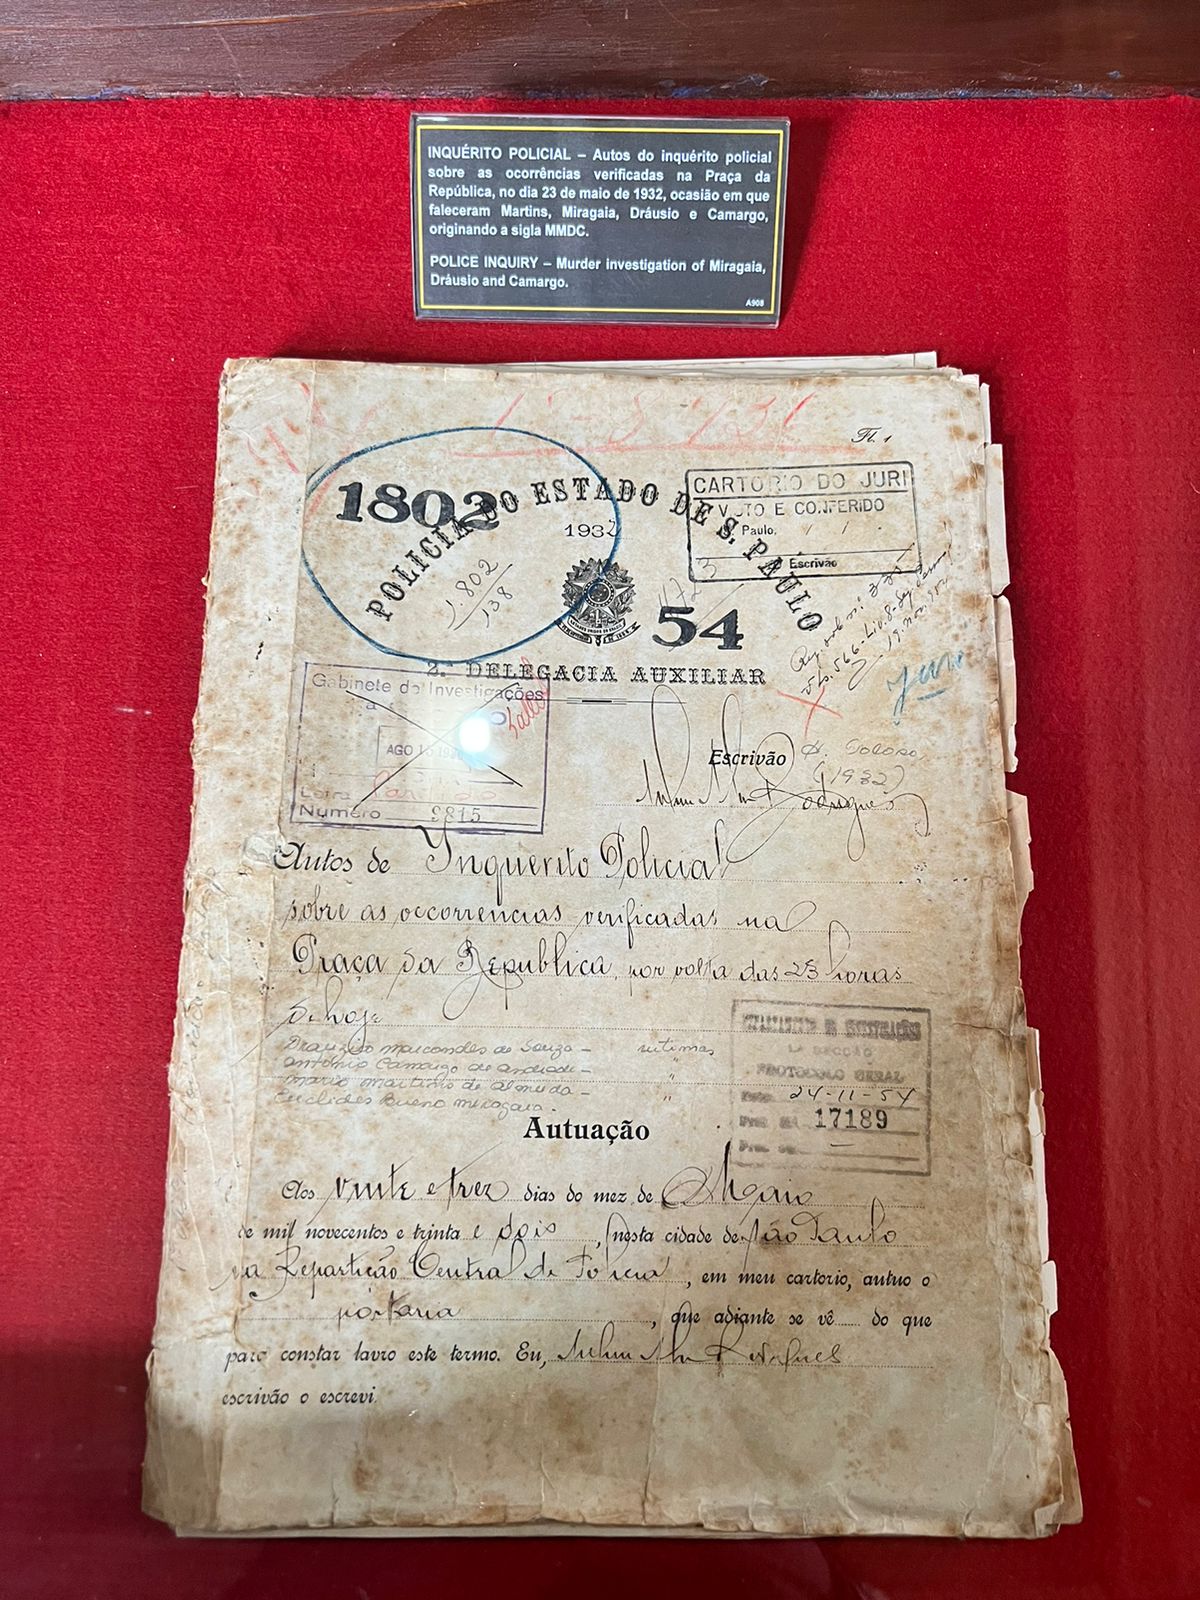 INQUÉRITO POLICIAL – Autos do inquérito policial
sobre as ocorrências verificadas na Praça da
República, no dia 23 de maio de 1932, ocasião em que
faleceram Martins, Miragaia, Dráusio e Camargo,
originando a sigla MMDC.
POLICE INQUIRY – Murder investigation of Miragaia,
Dráusio and Camargo.
A908
Fl. 1
1802
POLICIA DO ESTADO DE S. PAULO
1932
1.802
138
54
CARTORIO DO JURI
VISTO E CONFERIDO
S. Paulo, / / .
Escrivão
2.ª DELEGACIA AUXILIAR
Gabinete de Investigações
AGO 15 19
Letra
Numero 9815
Juri
Escrivão
(1932)
Rodrigues
Autos de Inquerito Policial
sobre as occorrencias verificadas na
Praça da Republica, por volta das 23 horas
de hoje
Drauzio Marcondes de Souza – vitimas
Antônio Camargo de Andrade – "
Mario Martins de Almeida – "
Euclides Bueno Miragaia.
1ª SECÇÃO
PROTOCOLO GERAL
24-11-54
17189
Autuação
Aos vinte e trez dias do mez de Maio
de mil novecentos e trinta e dois, nesta cidade de São Paulo
na Repartição Central de Policia, em meu cartorio, autuo o
portaria, que adiante se vê do que
para constar lavro este termo. Eu, Rodrigues
escrivão o escrevi.